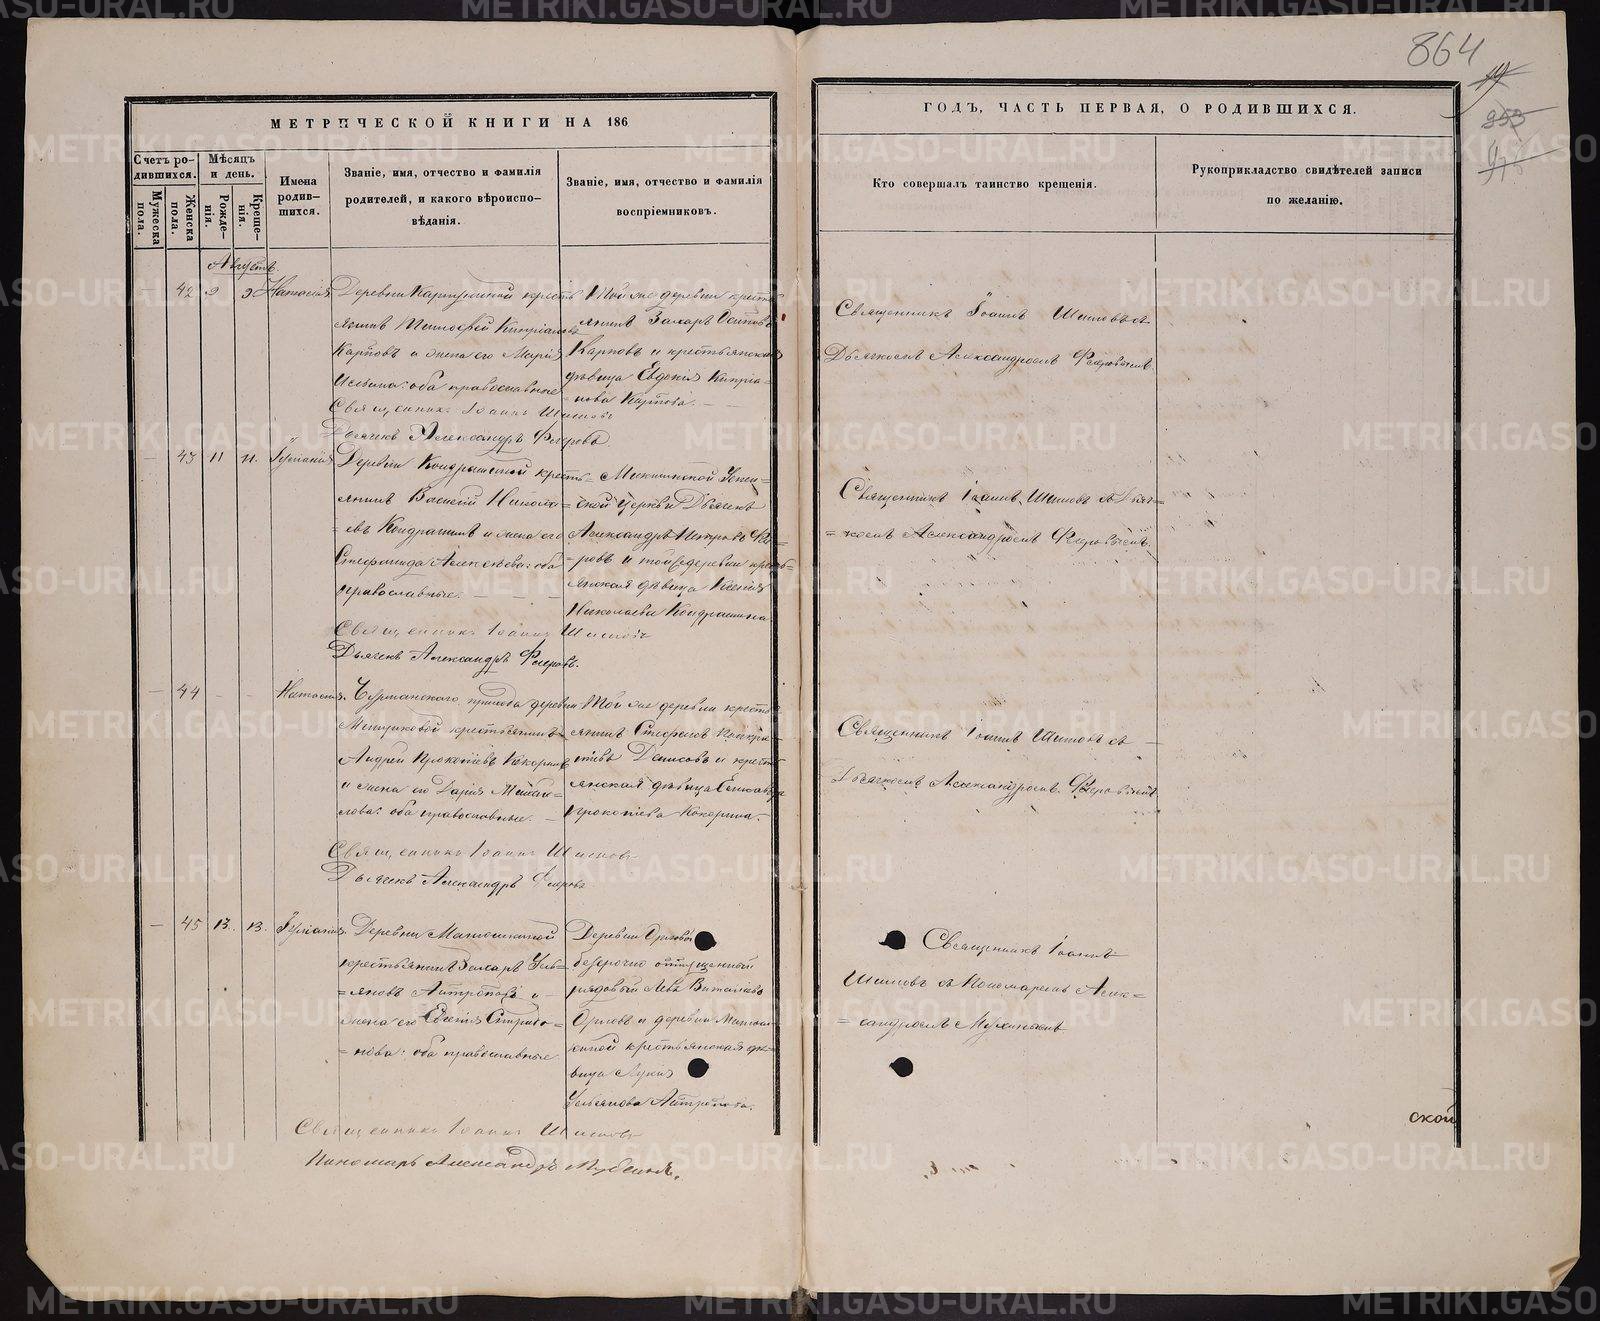 864
19
853
МЕТРИЧЕСКОЙ КНИГИ НА 186
ГОДЪ, ЧАСТЬ ПЕРВАЯ, О РОДИВШИХСЯ.
Счетъ ро-
дившихся.
Мужеска пола.
Женска пола.
Мѣсяцъ
и день.
Рожде-
нія.
Креще-
нія.
Имена
родив-
шихся.
Званіе, имя, отчество и фамилія
родителей, и какого вѣроиспо-
вѣданія.
Званіе, имя, отчество и фамилія
воспріемниковъ.
Кто совершалъ таинство крещенія.
Рукоприкладство свидѣтелей записи
по желанію.
Августъ.
42 9 9 Наталія
Деревни крестъ=
янинъ Тимофей Кипріановъ
Карповъ и жена его Марія
оба православные
Священникъ Іоаннъ Шишовъ
Дьячекъ Александръ Флеровъ.
Той же деревни кресть=
янинъ Захаръ Осиповъ
Карповъ и крестьянская
дѣвица Евдокія Кипріа=
нова Карпова.
Священникъ Іоаннъ Шишовъ съ
Дьячкомъ Александромъ Флеровымъ
43 11 11. Іуліанія
Деревни Кондрашиной кресть=
янинъ Василій Никола=
=евъ Кондрашинъ и жена его
Стефанида Алексѣева: оба
православные.
Священникъ Іоаннъ Шишовъ
Дьячекъ Александръ Флеровъ.
ской церкви Дьячекъ
Александръ Петровъ Фле=
=ровъ и той же деревни кресть=
янская дѣвица Ксенія
Николаева Кондрашина
Священникъ Іоаннъ Шишовъ съ Дьяч=
=комъ Александромъ Флеровымъ.
44 - - Наталія.
прихода деревни
крестьянинъ
Андрей Прокопіевъ Кокоринъ
и жена его Дарія Михаи=
лова: оба православные.
Священникъ Іоаннъ Шишовъ
Дьячекъ Александръ Флеровъ
Той же деревни кресть=
янинъ Стефанъ
Данисовъ и кресть=
янская дѣвица Елисавета
Прокопіева Кокорина.
Священникъ Іоаннъ Шишовъ съ
Дьячкомъ Александромъ Флеровымъ
45 13. 13. Іуліанія.
Деревни Манюшкиной
крестьянинъ Захаръ Улья=
=новъ Антроповъ и
жена его Евгенія Спиридо=
=нова: оба православные.
Деревни Орловой
безсрочно отпущенный
рядовый Левъ Виталіевъ
Орловъ и деревни Манюш=
киной крестьянская дѣ=
вица Лукія
Ульянова Антропова.
Священникъ Іоаннъ
Шишовъ съ Пономаремъ Алек=
=сандромъ Мухинымъ
Священникъ Іоаннъ Шишовъ
Пономарь Александръ Мухинъ.
ской
METRIKI.GASO-URAL.RU